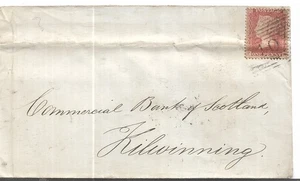 Commercial Bank of Scotland,
Kilwinning